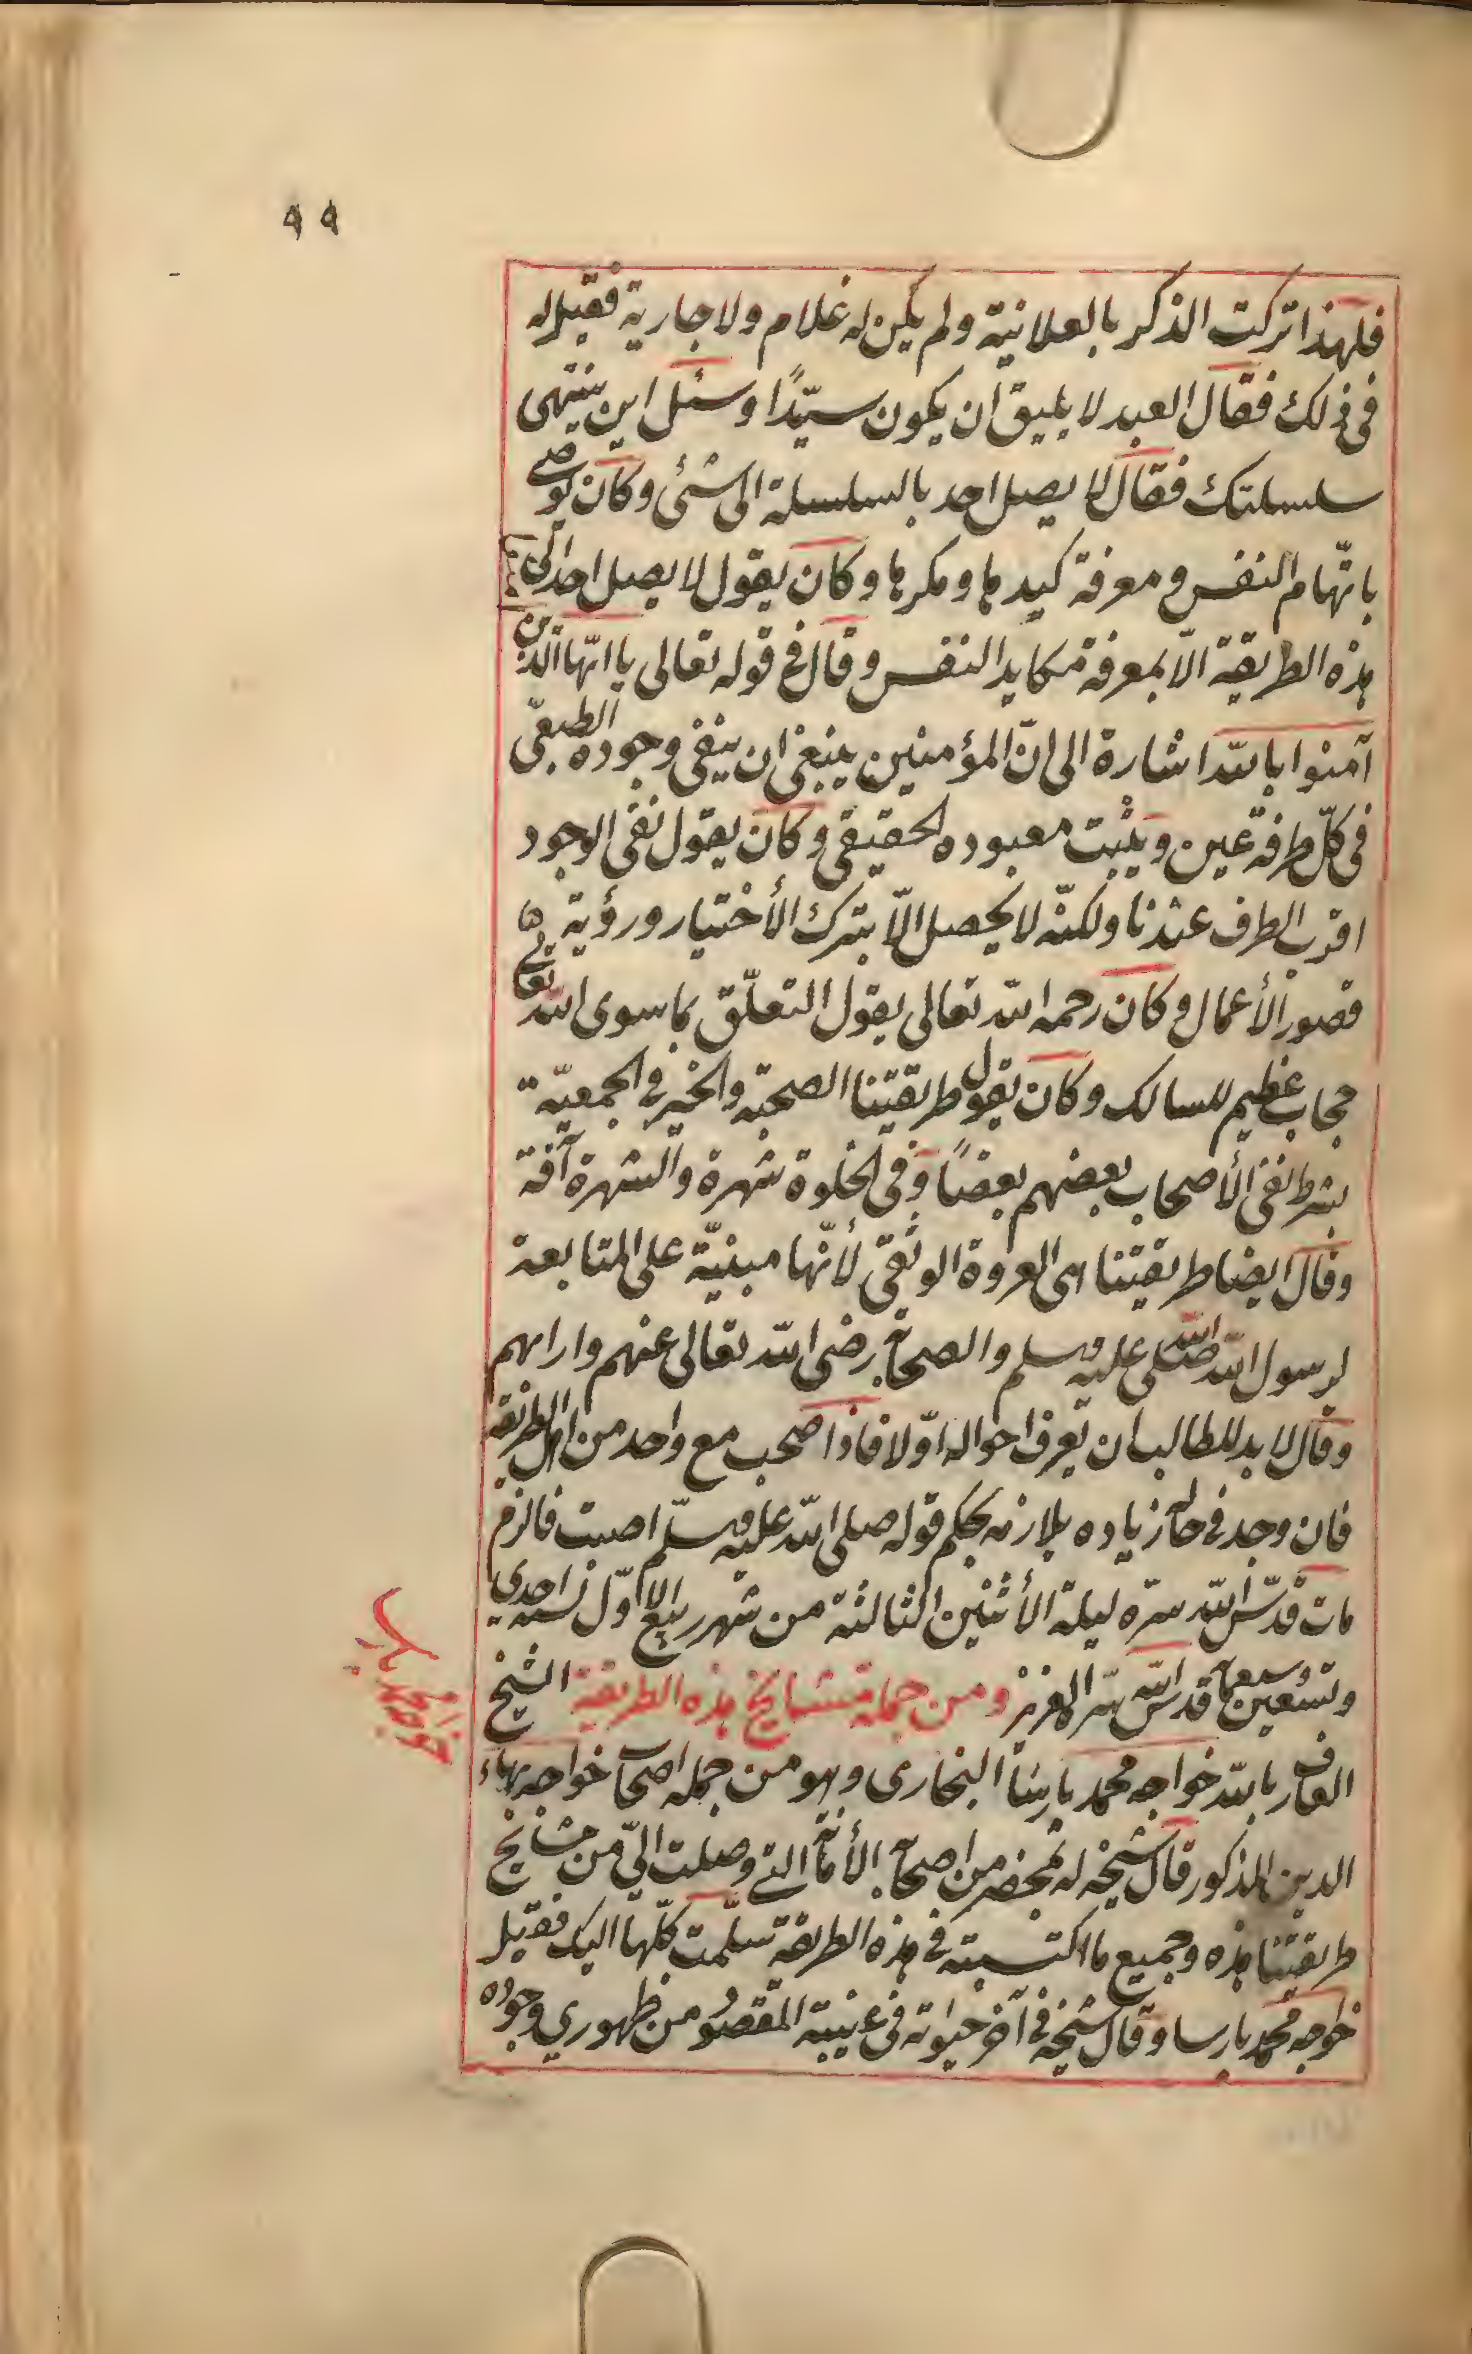 ٩٩
فلهذا تركت الذكر بالعلانية ولم يكن له غلام ولا جارية فقيل له
فى ذلك فقال العبد لا يليق ان يكون سيّدًا وسئل اين ينتهى
سلسلتك فقال لا يصل احد بالسلسلة الى شئى وكان يوصى
باتّهام النفس ومعرفة كيدها ومكرها وكان يقول لا يصل احد الى
هذه الطريقة الاّ بمعرفة مكايد النفس وقال فى قوله تعالى يا ايّها الذين
آمنوا بالله اشارة الى انّ المؤمنين ينبغى ان ينفى وجوده الطبيعى
فى كلّ طرفة عين ويثبت معبوده الحقيقى وكان يقول نفى الوجود
اقرب الطرف عندنا ولكنّه لا يحصل الاّ بترك الأختيار ورؤية
قصور الأعمال وكان رحمه الله تعالى يقول التعلّق بما سوى الله تعالى
حجاب عظيم للسالك وكان يقول طريقتنا الصحبة والخير فى الجمعيّة
بشرط نفى الأصحاب بعضهم بعضًا وفى الخلوة شهرة والشهرة آفة
وقال ايضا طريقتنا هى العروة الوثقى لأنّها مبنيّة على المتابعة
لرسول الله صلى الله عليه وسلم والصحابة رضى الله تعالى عنهم واراهم
وقال لا بد للطالب ان يعرف احواله اوّلا فاذا صحب مع واحد من اهل الطريقة
فان وجد فى حاله زياده يلازمه بحكم قوله صلى الله عليه وسلّم اصبت فالزم
مات قدّس الله سرّه ليلة الأثنين الثالثة من شهر ربيع الاوّل لسنة احدى
وتسعين وسبعمائة قدس الله سرّه العزيز ومن جملة مشايخ هذه الطريقة الشيخ
العارف بالله خواجه محمد پارسا البخارى وهو من جمله اصحاب خواجه بهاء
الدين المذكور قال شيخه له بمحضر من اصحابه الأمانة التى وصلت الىّ من مشايخ
طريقتنا هذه وجميع ما اكتسبته فى هذه الطريقة سلّمت كلّها اليك فقبل
خواجه محمد پارسا وقال شيخه فى آخر حيوته فى غيبته المقصود من ظهورى وجوده
خواجه محمد پارسا